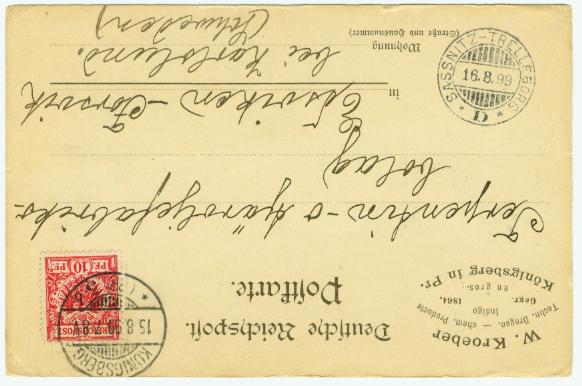 W. Kroeber
Techn. Drogen. — chem. Producte
Indigo
Gegr. 1864.
en gros.
Königsberg in Pr.
Deutsche Reichspost.
Postkarte.
KÖNIGSBERG
15.8.99.7-8V
(PR.)
REICHSPOST
10 PF. 10
Terpentin- o tjäroljefabriks-
bolag
in Edsviken - Forsvik
Wohnung
(Straße und Hausnummer)
bei Karlslund.
(Schweden)
SASSNITZ-TRELLEBORG
16.8.99